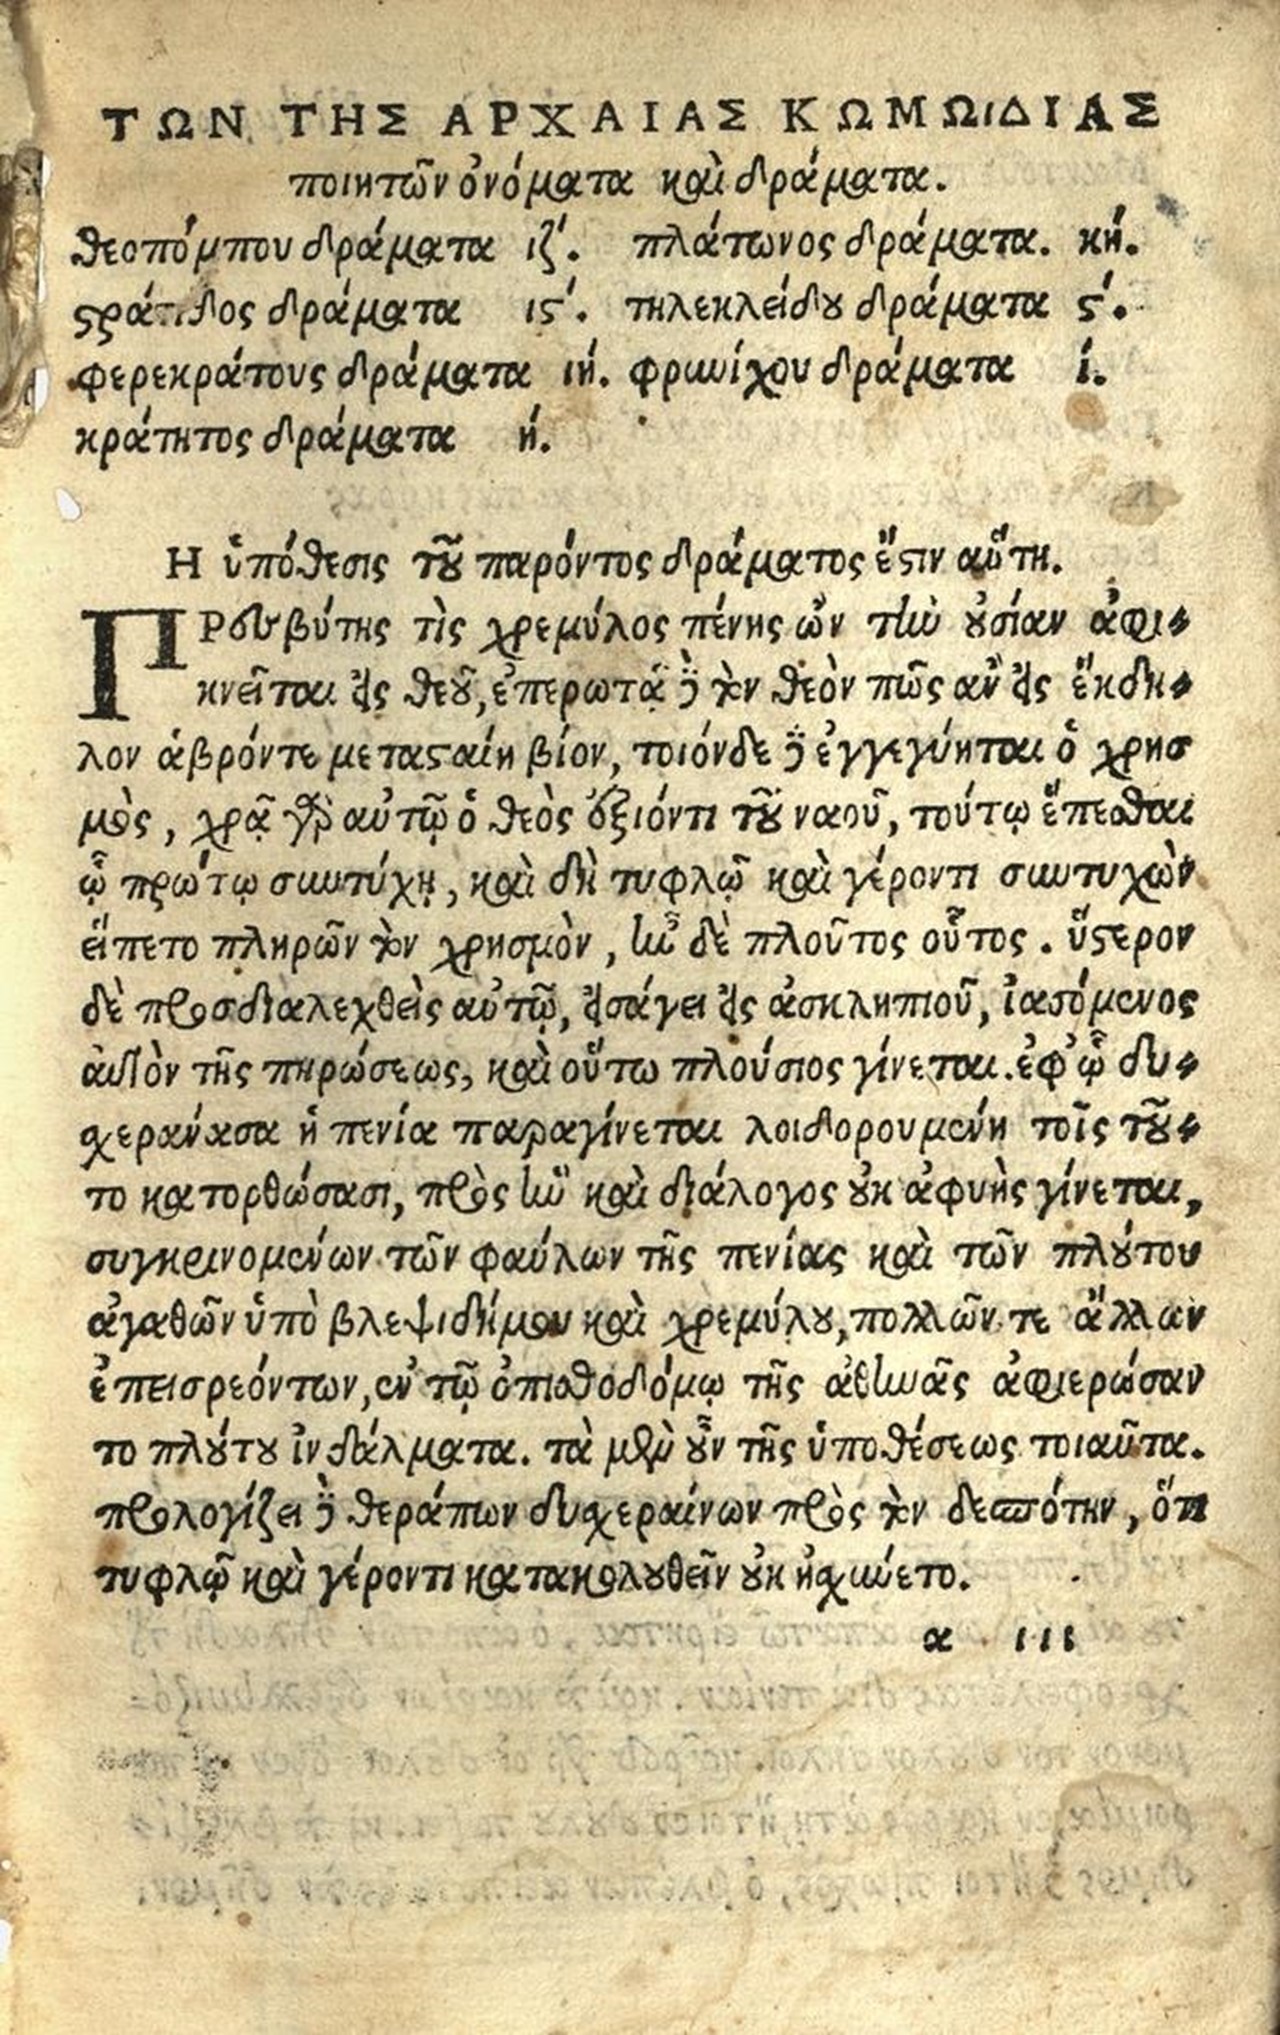 ΤΩΝ ΤΗΣ ΑΡΧΑΙΑΣ ΚΩΜΩΙΔΙΑΣ
ποιητῶν ὀνόματα καὶ δράματα.
θεοπόμπου δράματα ιζ΄. πλάτωνος δράματα. κή.
στράτιδος δράματα ις΄. τηλεκλείδου δράματα ς΄.
φερεκράτους δράματα ιή. φρυνίχου δράματα ί.
κράτητος δράματα ή.
Η ὑπόθεσις τοῦ παρόντος δράματος ἔστιν αὕτη.
ΠΡεσβύτης τὶς χρεμύλος πένης ὢν τὴν οὐσίαν ἀφι-
κνεῖται εἰς θεοῦ, ἐπερωτᾷ δὲ τὸν θεὸν πῶς ἂν εἰς ἔκδη-
λον ἁβρόντε μετασταίη βίον, τοιόνδε δὲ ἐγγεγύηται ὁ χρησ
μὸς, χρᾷ γὰρ αὐτῷ ὁ θεὸς ἐξιόντι τοῦ ναοῦ, τούτῳ ἕπεσθαι
ᾧ πρώτῳ συντύχῃ, καὶ δὴ τυφλῷ καὶ γέροντι συντυχὼν
εἵπετο πληρῶν τὸν χρησμὸν, ἦν δὲ πλοῦτος οὗτος. ὕστερον
δὲ προσδιαλεχθεὶς αὐτῷ, εἰσάγει εἰς ἀσκληπιοῦ, ἰασόμενος
αὐτὸν τῆς πηρώσεως, καὶ οὕτω πλούσιος γίνεται. ἐφ' ᾧ δυ-
χεράνασα ἡ πενία παραγίνεται λοιδορουμένη τοῖς τοῦ-
το κατορθώσασι, πρὸς ἣν καὶ διάλογος οὐκ ἀφυὴς γίνεται,
συγκρινομένων τῶν φαύλων τῆς πενίας καὶ τῶν πλούτου
ἀγαθῶν ὑπὸ βλεψιδήμου καὶ χρεμύλου, πολλῶν τε ἄλλων
ἐπεισρεόντων, ἐν τῷ ὀπισθοδόμῳ τῆς ἀθηνᾶς ἀφιερώσαν
το πλούτου ἰνδάλματα. τὰ μὲν οὖν τῆς ὑποθέσεως τοιαῦτα.
προλογίζει δὲ θεράπων δυχεραίνων πρὸς τὸν δεσπότην, ὅτι
τυφλῷ καὶ γέροντι κατακολουθεῖν οὐκ ἠχύνετο.
α ιιι